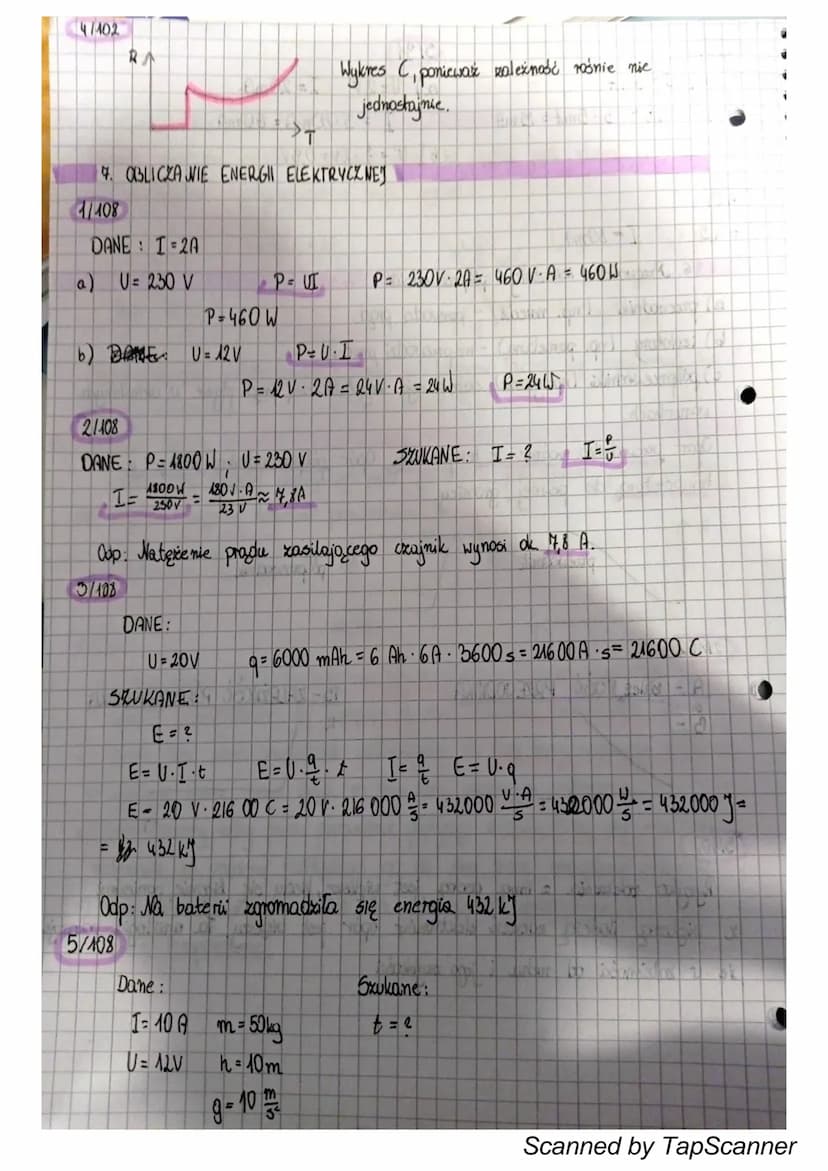 4/102
R
Wykres C, ponieważ zależność rośnie nie
jednostajnie.
T
7. OBLICZANIE ENERGII ELEKTRYCZNEJ
1/108
DANE: I=2A
a) U=230 V P=UI P= 230V·2A= 460 V·A = 460W
P=460W
b) U=12V P=U·I
P=12V·2A=24V·A=24W P=24W
2/108
DANE: P=1800W; U=230 V SZUKANE: I=? I=P/U
I= 1800W/230V = 180V·A/23 V ≈ 7,8A
Odp: Natężenie prądu zasilającego czajnik wynosi ok 7,8 A.
3/108
DANE:
U=20V q=6000 mAh=6 Ah·6A·3600s=21600A·s=21600 C
SZUKANE:
E=?
E=U·I·t E=U·q/t·t I=q/t E=U·q
E= 20 V·216 00 C=20V·216 000 A/s=432000 V·A/s=432000 W/s=432000 J=
= 432 kJ
Odp: Na baterii zgromadziła się energia 432 kJ
5/108
Dane: Szukane:
I=10A m=50kg t=?
U=12V h=10m
g=10 m/s²
Scanned by TapScanner